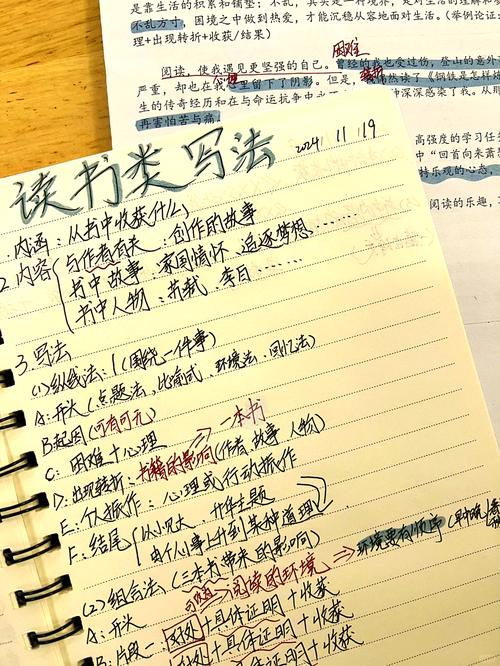 是靠生活的积累和铺垫;不乱,其实是一种境界,是对生活的理解和
不乱方寸,困境之中做到热爱,才能沉稳从容地面对生活。(举例论证:
理+出现转折+收获/结果)
困难
阅读,使我遇见更坚强的自己。曾经的我也受过伤,登山的意外
严重,却也在我心里留下了阴影。但是,我偶然读了《钢铁是怎样炼
生的传奇经历和在与命运抗争中 深深感染了我。从那
再害怕苦与痛
高强度的学习任
中“回首向来萧
持乐观的心态,
阅读的乐趣,
读书类写法
2024 11 19
1.内涵:从书中收获什么
2.内容 与作者有关:创作的故事
书中故事 家国情怀 追逐梦想……
书中人物:苏轼、李白……
3.写法
(1)纵线法:1(围绕一件事)
A:开头(点题法、比喻式、环境法、回忆法)
B起因(可有可无)
C:困难+心理 一本书
D:出现转折:书籍的影响(作者、故事、人物)
E:个人振作:心理或行动振作
F:结尾 从小见大,升华主题
由个人小事上升到某种道理
(2)组合法(三本书带来的影响)
A:开头 阅读的环境 环境要有顺序
B:片段一:困难+具体证明+收获
困难+具体证明+收获
+具体证明+收获